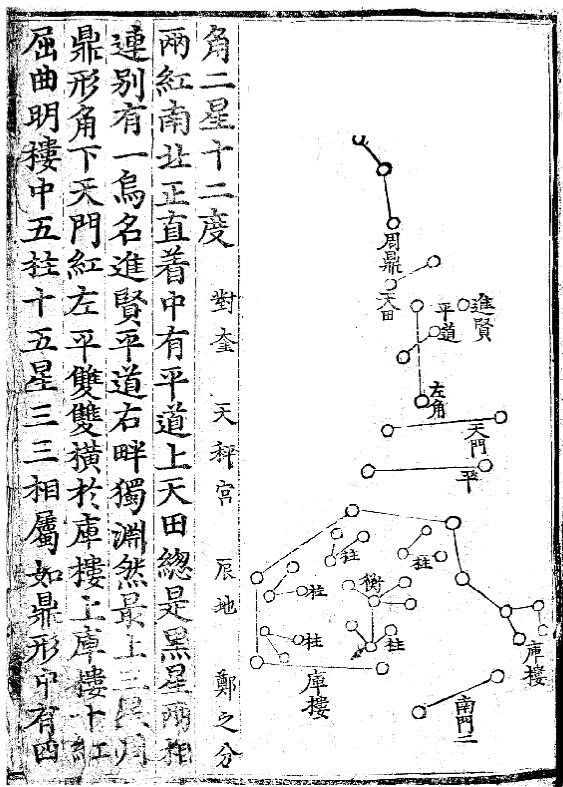 周鼎
天田
進賢
平道
左角
天門
平
柱
柱
衡
柱
柱
柱
庫樓
庫樓
南門二
角二星十二度 對奎 天秤宮 辰地 鄭之分
兩紅南北正直着中有平道上天田總是黑星兩相
連別有一烏名進賢平道右畔獨淵然最上三
鼎形角下天門紅左平雙雙橫於庫樓上庫樓十紅
屈曲明樓中五柱十五星三三相屬如鼎形中有四